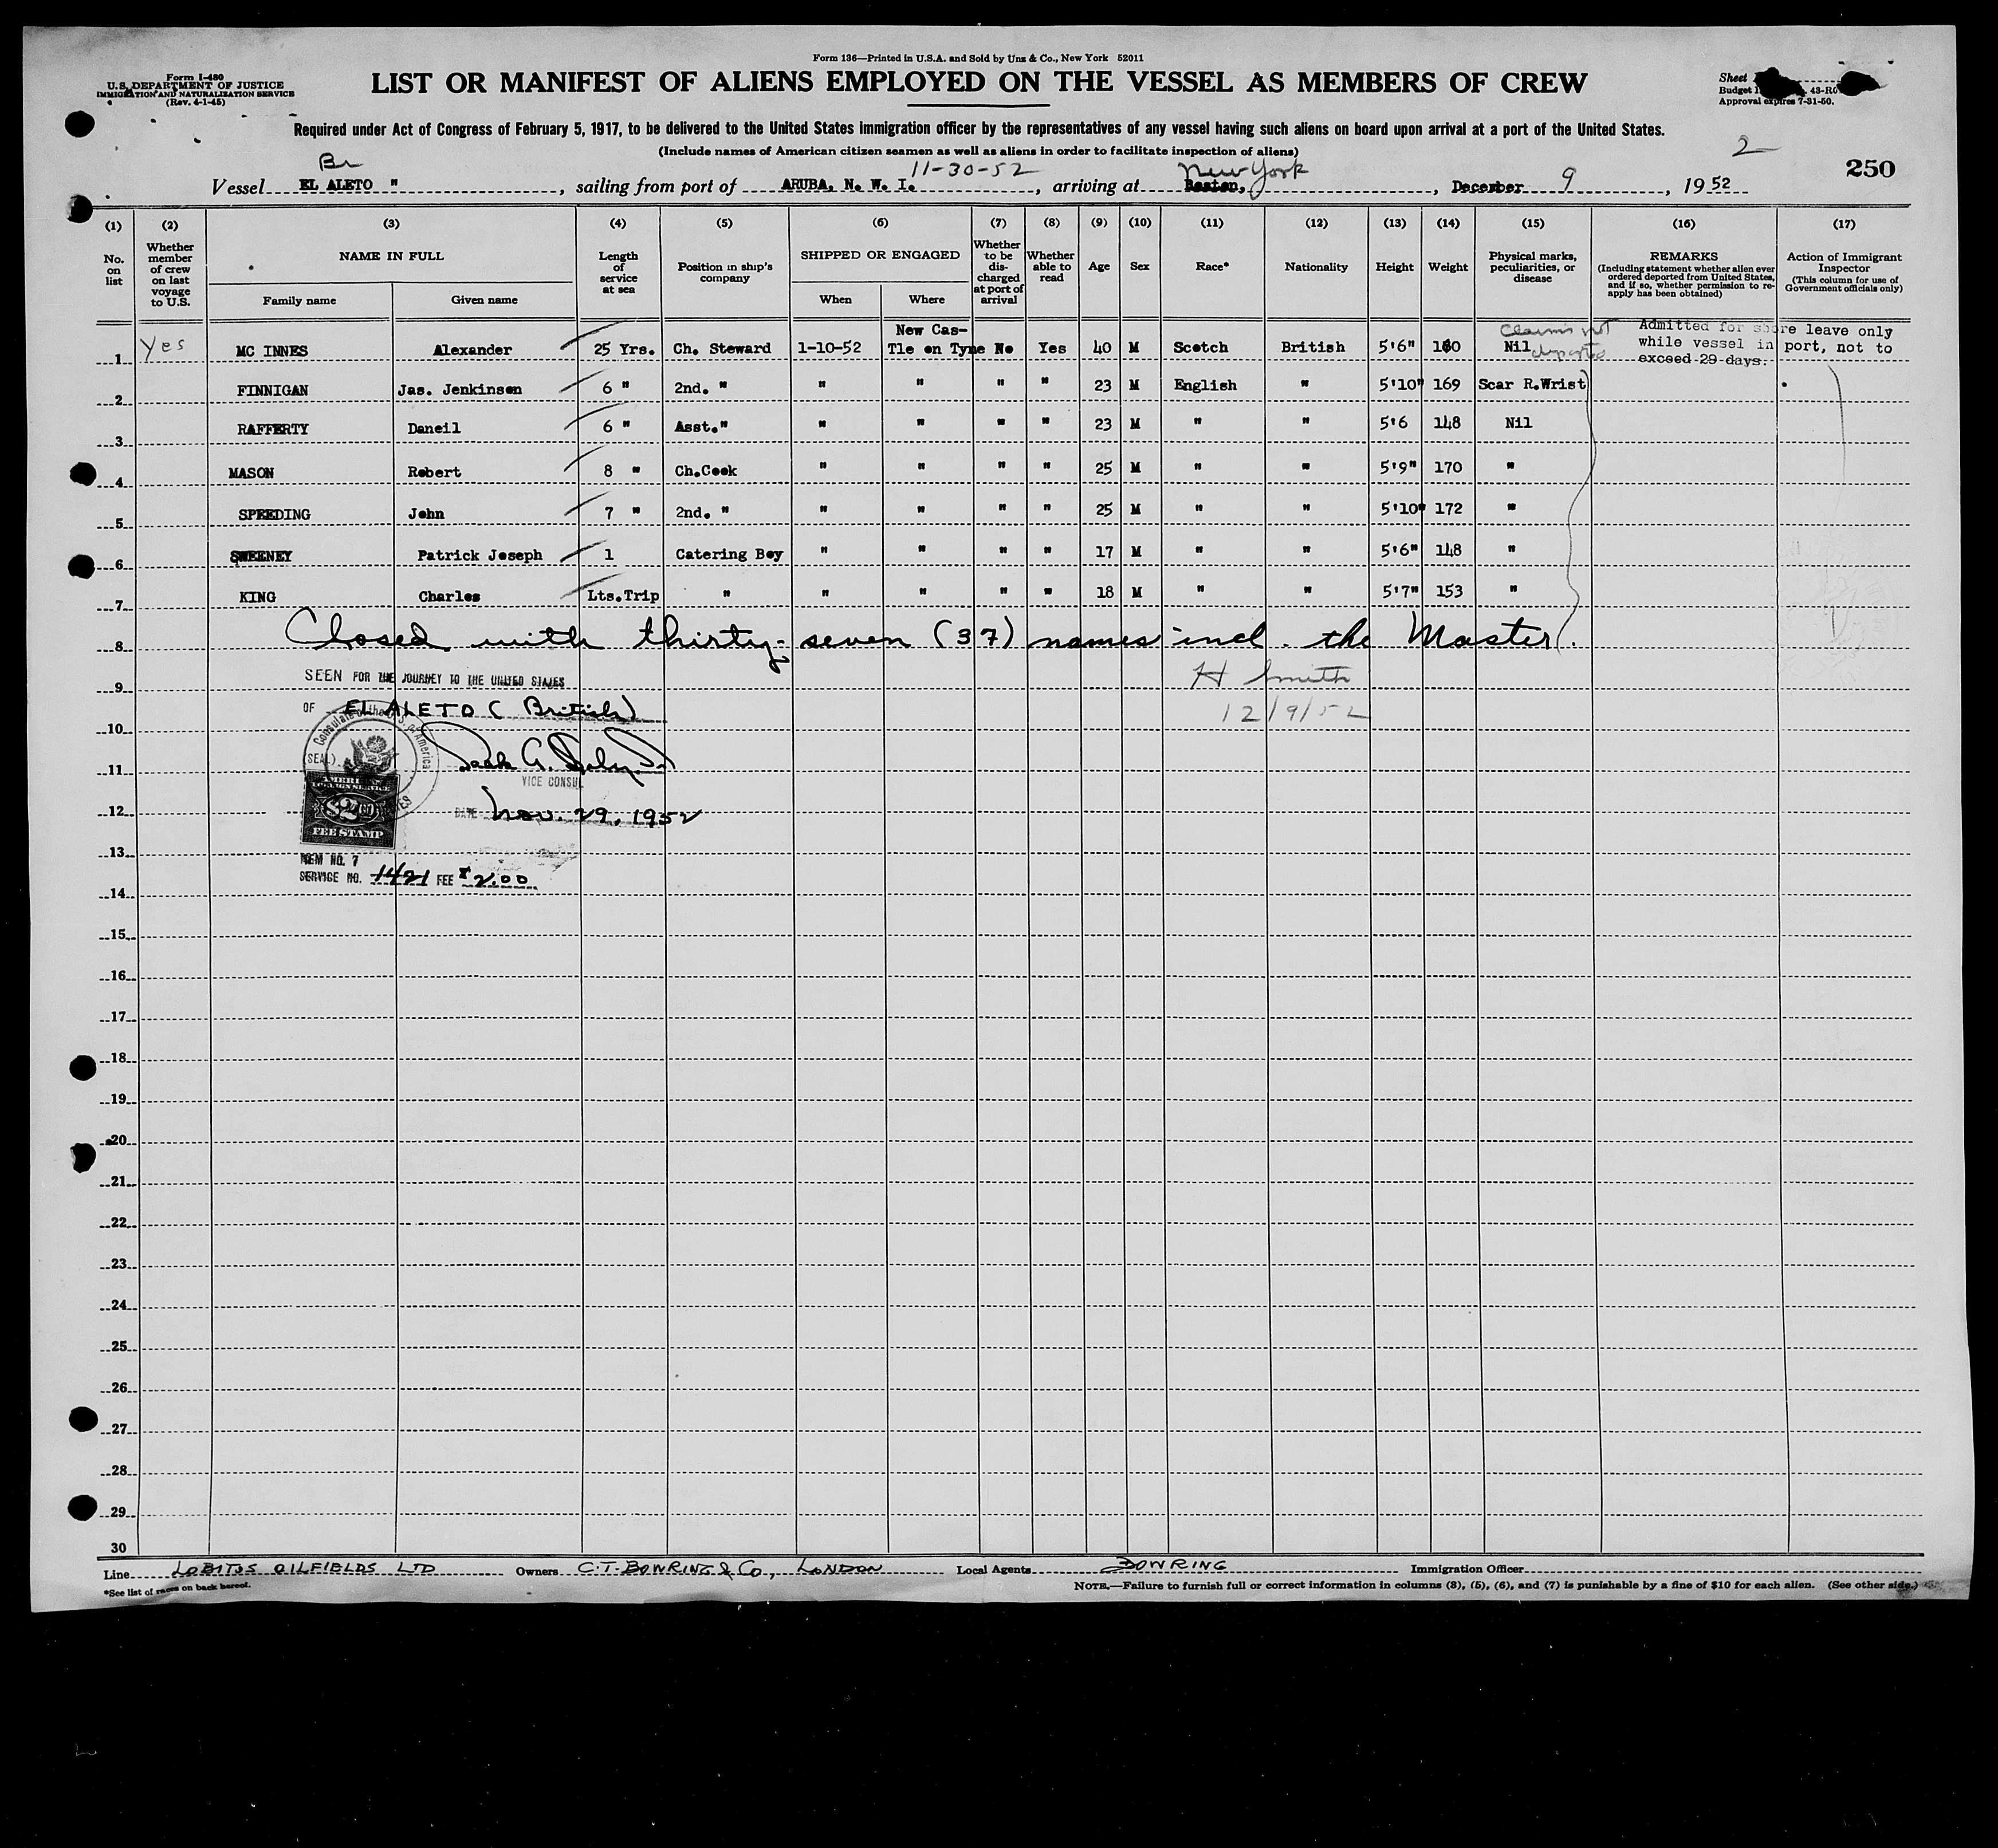 Form 136—Printed in U.S.A. and Sold by Unz & Co., New York 52011
Form I-480
U.S. DEPARTMENT OF JUSTICE
IMMIGRATION AND NATURALIZATION SERVICE
(Rev. 4-1-45)
LIST OR MANIFEST OF ALIENS EMPLOYED ON THE VESSEL AS MEMBERS OF CREW
Sheet
Budget 43-R
Approval expires 7-31-50.
Required under Act of Congress of February 5, 1917, to be delivered to the United States immigration officer by the representatives of any vessel having such aliens on board upon arrival at a port of the United States.
(Include names of American citizen seamen as well as aliens in order to facilitate inspection of aliens)
2
250
Br 11-30-52 New York
Vessel EL ALETO ", sailing from port of ARUBA, N. W. I., arriving at Boston, , December 9, 1952
(1) (2) (3) (4) (5) (6) (7) (8) (9) (10) (11) (12) (13) (14) (15) (16) (17)
No. on list
Whether member of crew on last voyage to U.S.
NAME IN FULL
Family name Given name
Length of service at sea
Position in ship's company
SHIPPED OR ENGAGED
When Where
Whether to be discharged at port of arrival
Whether able to read
Age Sex Race* Nationality Height Weight
Physical marks, peculiarities, or disease
REMARKS
(Including statement whether alien ever ordered deported from United States, and if so, whether permission to re-apply has been obtained)
Action of Immigrant Inspector
(This column for use of Government officials only)
1 Yes MC INNES Alexander 25 Yrs. Ch. Steward 1-10-52 New Cas-Tle on Tyne No Yes 40 M Scotch British 5'6" 160 Nil Claims not deported
Admitted for shore leave only
while vessel in port, not to
exceed 29 days.
2 FINNIGAN Jas. Jenkinson 6 " 2nd. " " " " " 23 M English " 5'10" 169 Scar R.Wrist
3 RAFFERTY Daneil 6 " Asst." " " " " 23 M " " 5'6 148 Nil
4 MASON Robert 8 " Ch.Cook " " " " 25 M " " 5'9" 170 "
5 SPEEDING John 7 " 2nd. " " " " " 25 M " " 5'10" 172 "
6 SWEENEY Patrick Joseph 1 Catering Boy " " " " 17 M " " 5'6" 148 "
7 KING Charles Lts.Trip " " " " " 18 M " " 5'7" 153 "
8 Closed with thirty-seven (37) names incl. the Master.
H Smith
9 SEEN FOR THE JOURNEY TO THE UNITED STATES
12/9/52
OF EL ALETO (British)
10
Consulate of the U.S. of America
(SEAL)
11
VICE CONSUL
AMERICAN
FOREIGN SERVICE
$2.00
FEE STAMP
12
DATE Nov. 29, 1952
13
ITEM NO. 7
SERVICE NO. 1421 FEE $2.00
14
15
16
17
18
19
20
21
22
23
24
25
26
27
28
29
30
Line LOBITOS OILFIELDS LTD Owners C.T. BOWRING & Co., LONDON Local Agents BOWRING Immigration Officer
*See list of races on back hereof.
NOTE.—Failure to furnish full or correct information in columns (3), (5), (6), and (7) is punishable by a fine of $10 for each alien. (See other side.)